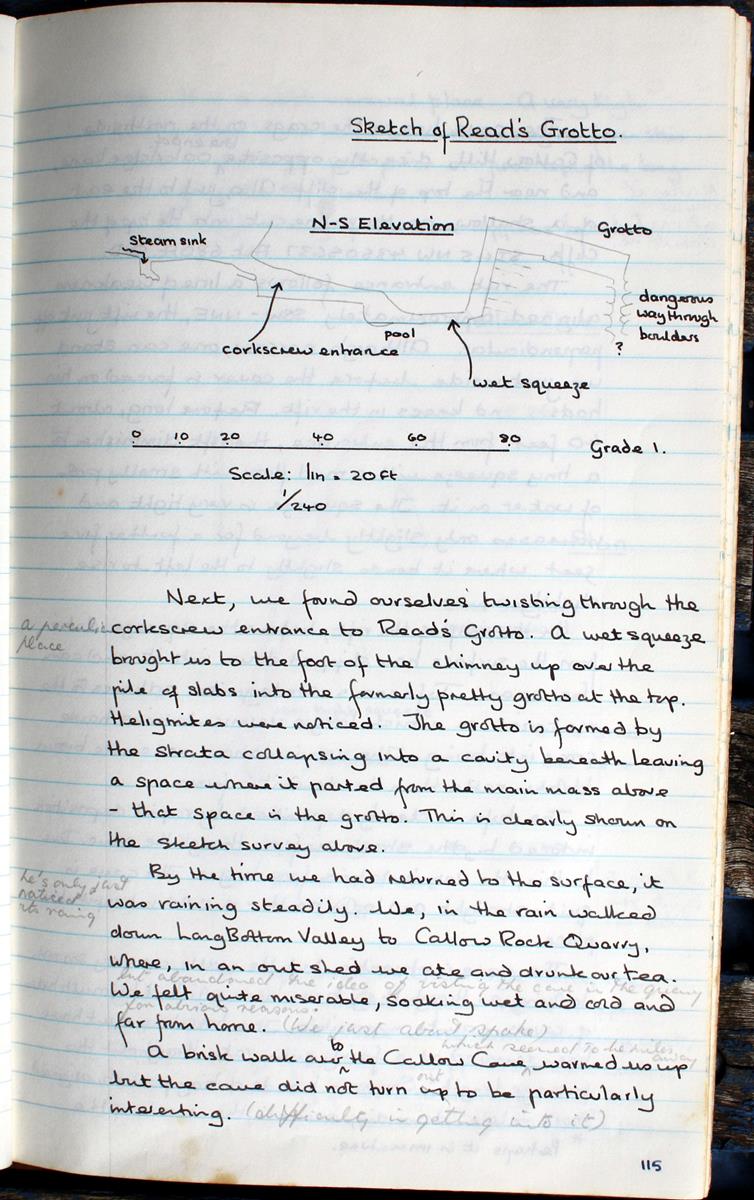 Sketch of Read's Grotto.
N-S Elevation
Grotto
Steam sink
dangerous
way through
boulders
?
pool
corkscrew entrance
wet squeeze
0 10 20 40 60 80
Grade 1.
Scale: 1in = 20ft
1/240
Next, we found ourselves twisting through the
a peculiar
place
corkscrew entrance to Read's Grotto. A wet squeeze
brought us to the foot of the chimney up over the
pile of slabs into the formerly pretty grotto at the top.
Heligmites were noticed. The grotto is formed by
the strata collapsing into a cavity beneath leaving
a space where it parted from the main mass above
- that space is the grotto. This is clearly shown on
the sketch survey above.
By the time we had returned to the surface, it
he's only just
noticed
its raining
was raining steadily. We, in the rain walked
down LongBottom Valley to Callow Rock Quarry,
where, in an out shed we ate and drunk our tea.
but abandoned the idea of visiting the cave in the quarry
for obvious reasons.
We felt quite miserable, soaking wet and cold and
far from home. (We just about spoke)
which seemed to be miles away
A brisk walk to the Callow Cave warmed us up
but the cave did not turn out up to be particularly
interesting. (difficulty in getting into it)
115